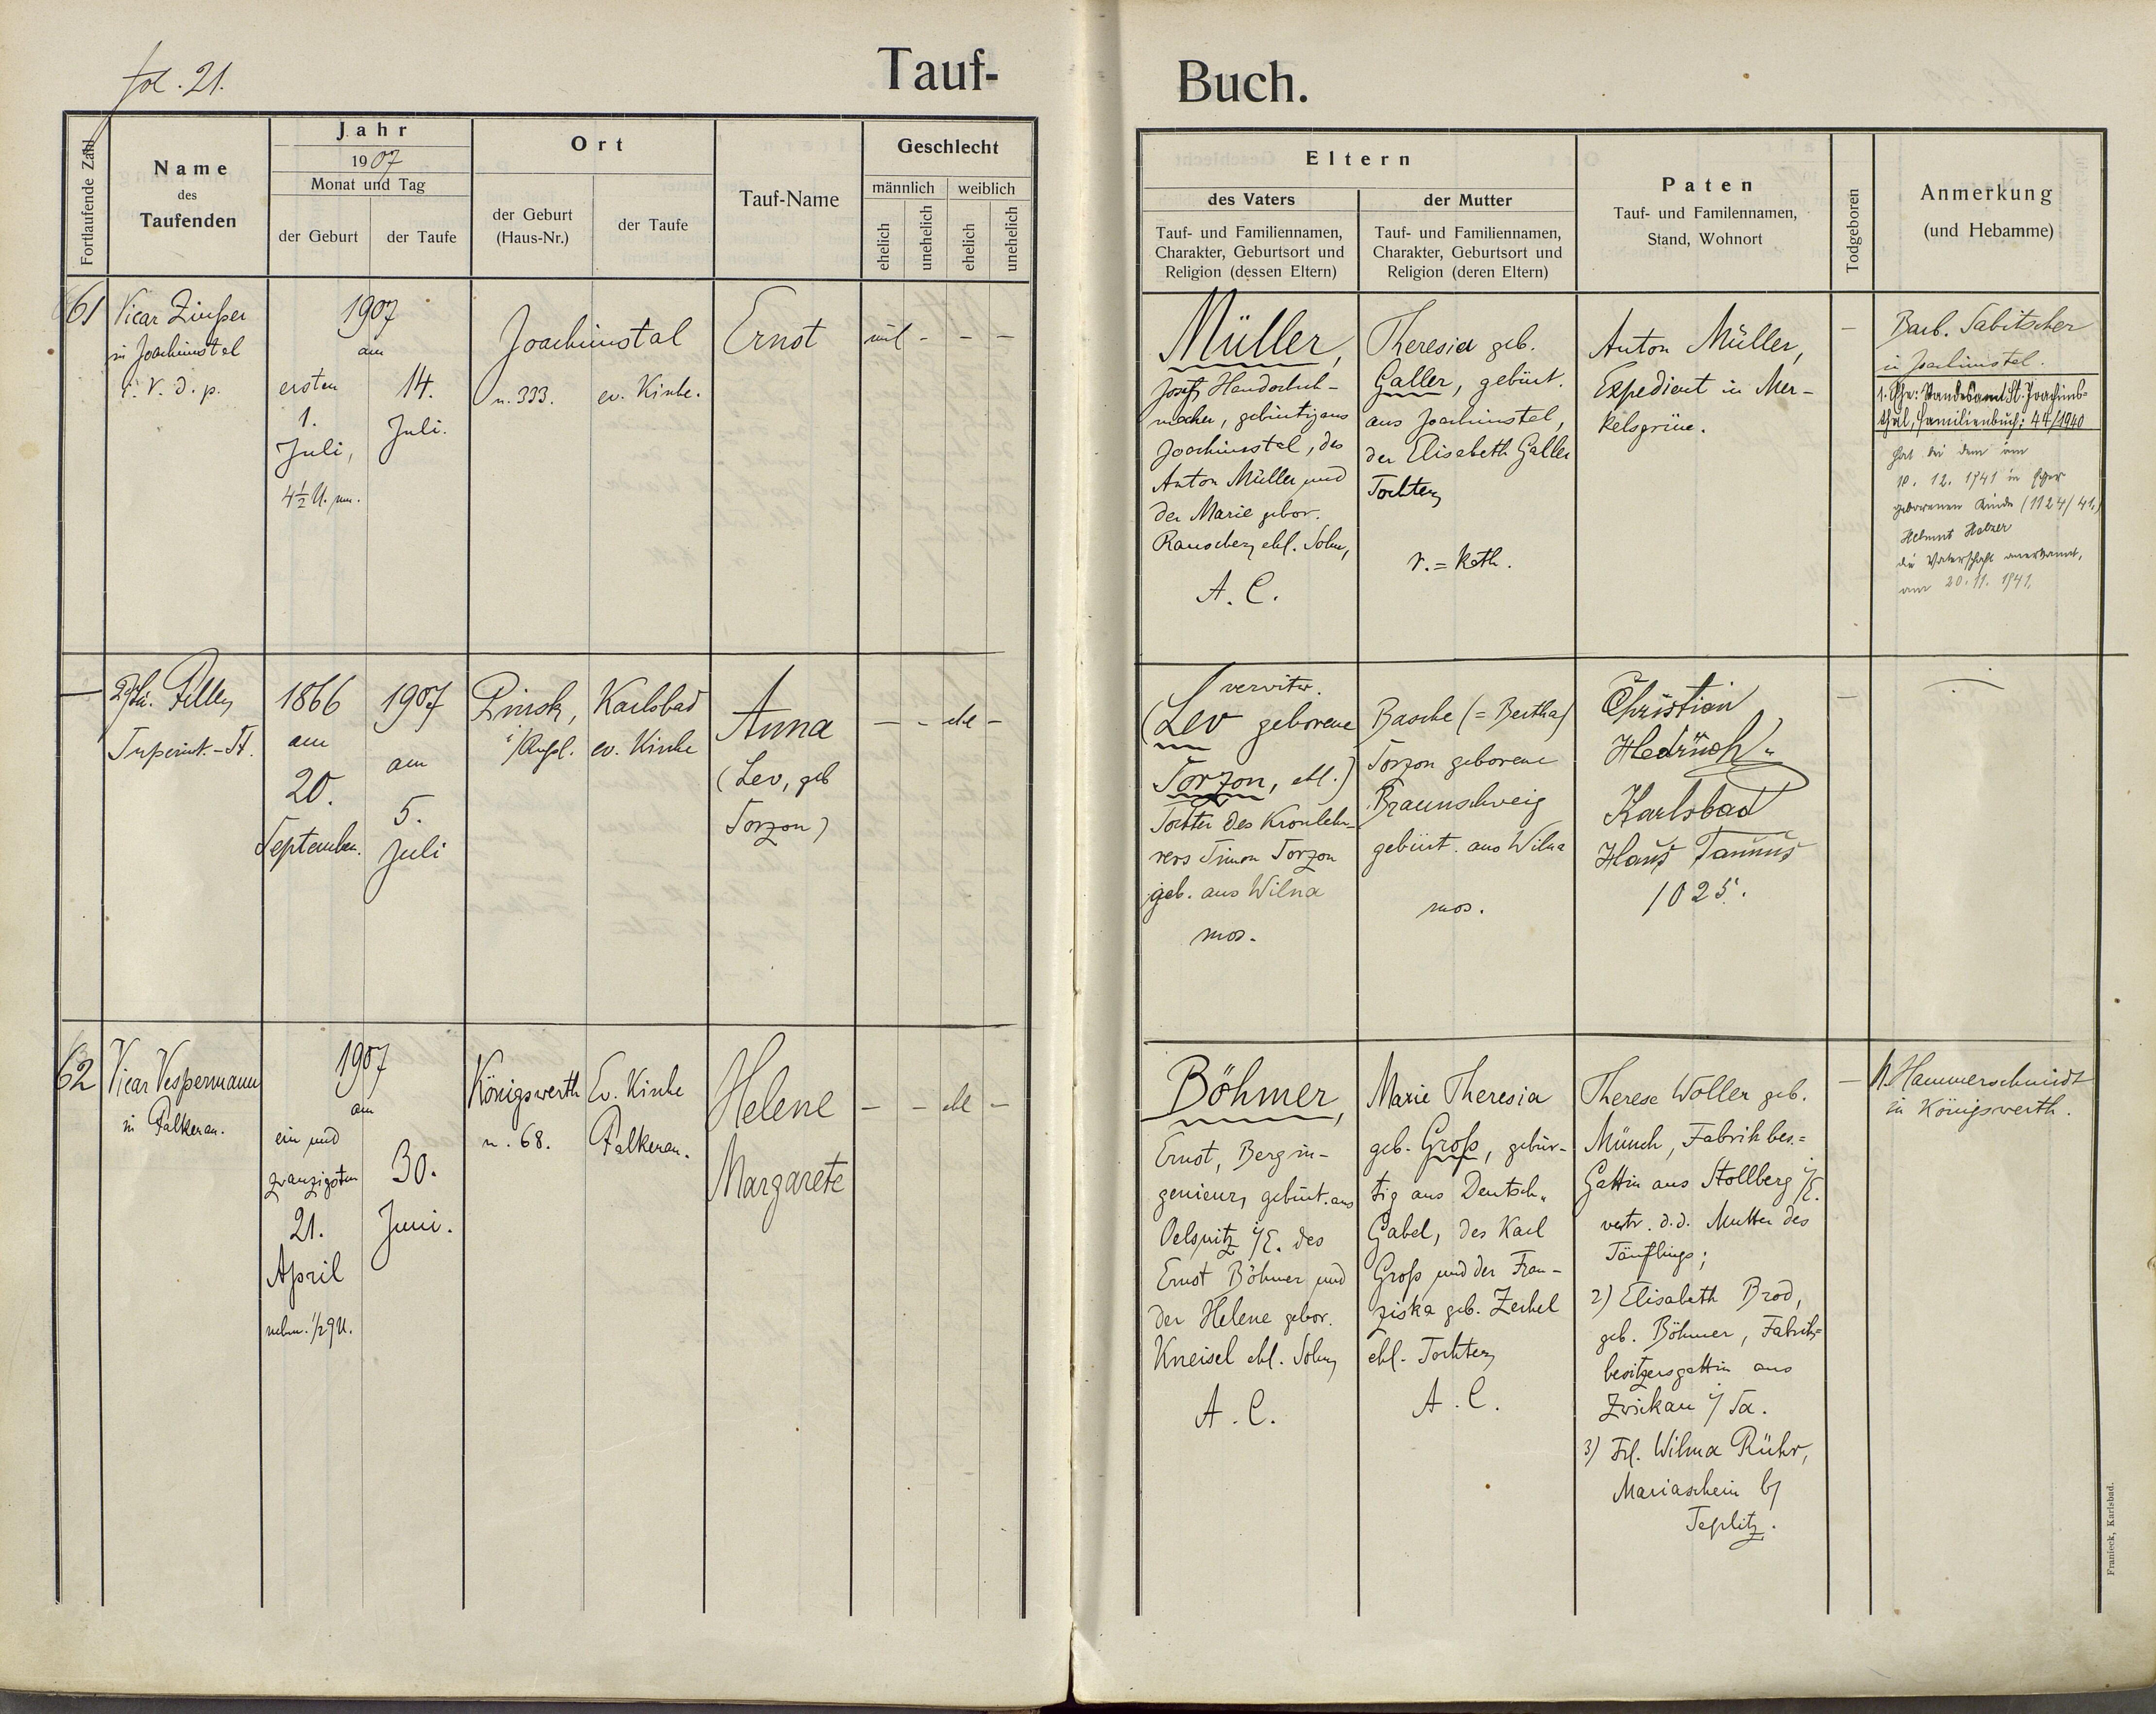 fol. 21.
Tauf-
Buch.
Fortlaufende Zahl
Name
des
Taufenden
Jahr
1907
Monat und Tag
der Geburt
der Taufe
Ort
der Geburt
(Haus-Nr.)
der Taufe
Tauf-Name
Geschlecht
männlich
weiblich
ehelich
unehelich
ehelich
unehelich
Eltern
des Vaters
Tauf- und Familiennamen,
Charakter, Geburtsort und
Religion (dessen Eltern)
der Mutter
Tauf- und Familiennamen,
Charakter, Geburtsort und
Religion (deren Eltern)
Paten
Tauf- und Familennamen,
Stand, Wohnort
Todgeboren
Anmerkung
(und Hebamme)
61
Vicar
in Joachimstal
i. V. d. p.
1907
am
ersten
1.
Juli,
4½ U. nm.
14.
Juli.
Joachimstal
n. 333.
ev. Kirche.
Ernst
- - -
Müller,
Josef, Handschuh-
macher, gebürtig aus
Joachimstal, des
Anton Müller und
der Marie gebor.
Rauscher, ehl. Sohn,
A. C.
Theresia geb.
Galler, gebürt.
aus Joachimstal,
der Elisabeth Galler
Tochter,
r. = kath.
Anton Müller,
Expedient in Mer-
kelsgrün.
—
Barb. Sabitscher
in Joachimstal.
1. Ehe: Standesamt St. Joachims-
thal, Familienbuch: 44/1940
hat bei dem am
12. 1941 in Eger
geborenen Kinde (1124/41.)
Helmut Holzer
die Vaterschaft anerkannt,
am 20. 11. 1941.
—
1866
am
20.
September.
1907
am
5.
Juli
Pinsk,
Karlsbad
ev. Kirche
Anna
(Lev, geb
Torzon)
— - ehl -
verwitw.
(Lev geborene
Torzon, ehl.)
Tochter des Kronleh-
rers Simon Torzon
geb. aus Wilna
mos.
Basche (= Bertha)
Torzon geborene
Braunschweig
gebürt. aus Wilna
mos.
Christian
Karlsbad
Haus Taunus
1025.
—
62
Vicar Vespermann
in Falkenau.
1907
am
ein und
zwanzigsten
21.
April
nchm. ½9 U.
30.
Juni.
Königswerth
n. 68.
Ev. Kirche
Falkenau.
Helene
Margarete
- - ehl -
Böhmer,
Ernst, Bergin-
genieur, gebürt. aus
Oelsnitz i/E. des
Ernst Böhmer und
der Helene gebor.
Kneisel ehl. Sohn,
A. C.
Marie Theresia
geb. Groß, gebür-
tig aus Deutsch-
Gabel, des Karl
Groß und der Fran-
ziska geb. Zerhel
ehl. Tochter,
A. C.
Therese Woller geb.
Münch, Fabrikbes.=
Gattin aus Stollberg i/E.
vertr. d. d. Mutter des
Täuflings;
2) Elisabeth Brod,
geb. Böhmer, Fabriks=
besitzersgattin aus
Zwickau i/Sa.
3) Frl. Wilma Rühr,
Mariaschein b/
Teplitz.
—
Hammerschmidt
in Königswerth.
Franieck, Karlsbad.